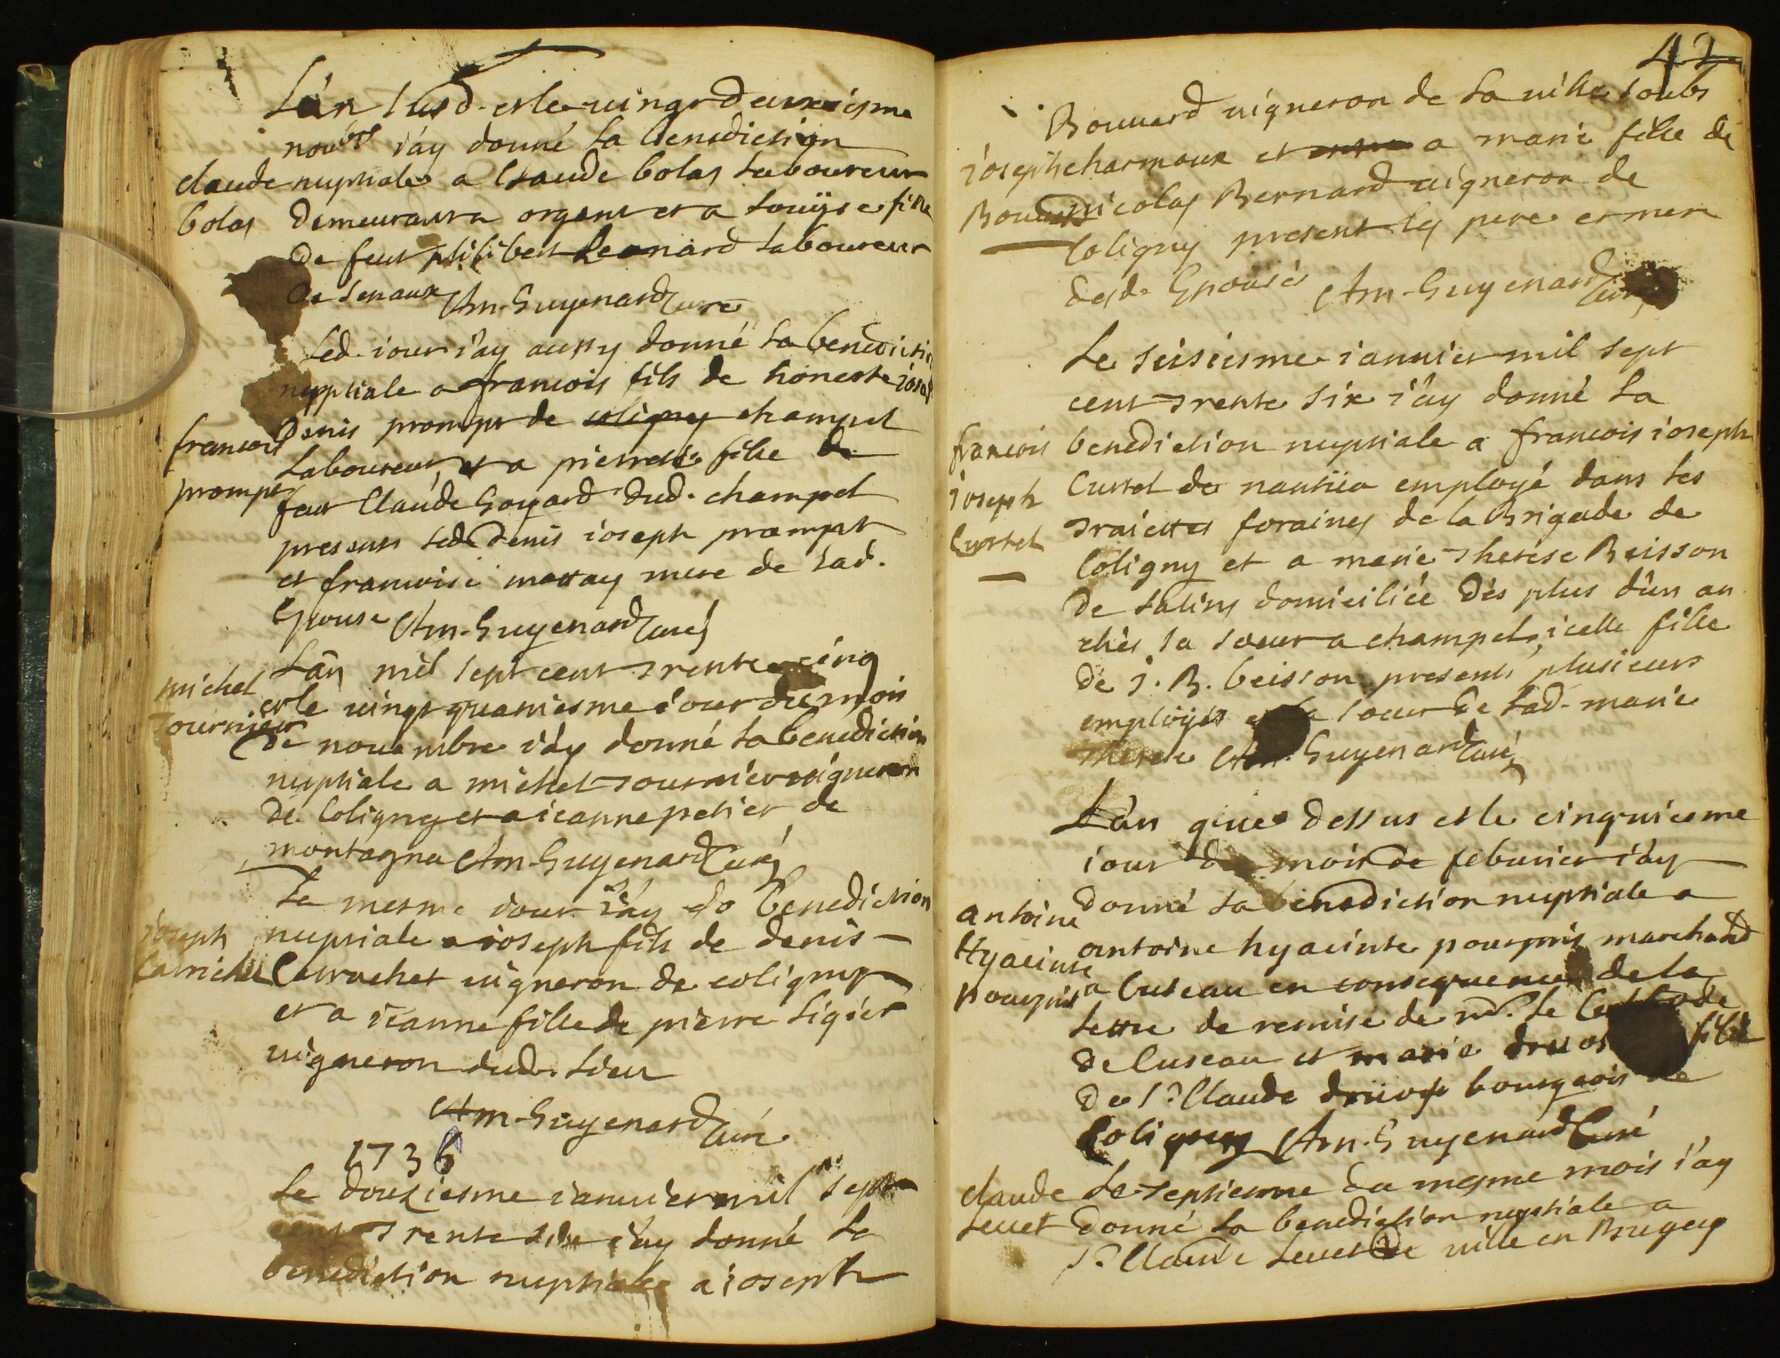 L'an susd. et le vingt deuxiesme
nov.bre i'ay donné la benediction
claude nuptiale a Claude bolas laboureur
bolas demeurant a orgent et a louyse fille
de feut philibert Leonard laboureur
de senaux Am. Guyenard Curé
Led. iour i'ay aussy donné la benediction
nuptiale a francois fils de honeste ioseph
Denis prompt de coligny champel
francois laboureur et a pierrette fille de
prompt feut Claude Goyard dud. champel
presents led. Denis ioseph prompt
et francoise mattay mere de lad.
Epouse Am. Guyenard Curé
L'an mil sept cent trente cinq
michel et le vingt quatriesme iour du mois
Tournier de novembre i'ay donné la benediction
nuptiale a michel tournier vigneron
de Coligny et a ieanne petier de
montagna Am. Guyenard Curé
Le mesme iour i'ay do benediction
ioseph nuptiale a ioseph fils de denis
vigneron de coligny
et a ieanne fille de pierre ligier
vigneron dud. lieu
Am. Guyenard Curé
1736
Le douziesme ianvier mil sept
cent trente six i'ay donné la
benediction nuptiale a ioseph
42
Bouvard vigneron de la ville soubs
ioseph charmoux et a marie fille de
Bouvard nicolas Bernard vigneron de
Coligny present les pere et mere
desd. Epousés Am. Guyenard Curé
Le seisiesme ianvier mil sept
cent trente six i'ay donné la
francois benediction nuptiale a francois ioseph
ioseph Curtet de nantua employé dans les
Curtet traiettes foraines de la Brigade de
Coligny et a marie therese Buisson
de salins domiciliée dès plus d'un an
chés sa soeur a champel, icelle fille
de J. B. beisson presents plusieurs
employés et la soeur de lad. marie
therese Am. Guyenard Curé
L'an que dessus et le cinquiesme
iour du mois de febvrier i'ay
antoine donné la benediction nuptiale a
Hyacinte antoine hyacinte pourpris marchand
pourpris a Cuseau en consequence de la
lettre de remise de mr. le
de Cuseau et marie druos fille
de Sr. Claude driiost bourgeois de
Coligny Am. Guyenard Curé
claude Le septiesme du mesme mois i'ay
levet donné la benediction nuptiale a
Sr. Claude Levet de ville en Bugey